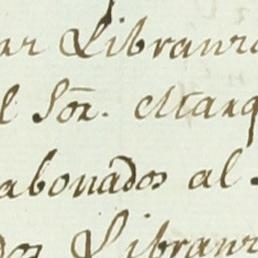 ar Libranza
l Sor. Marq
abonados al
dos Libranz